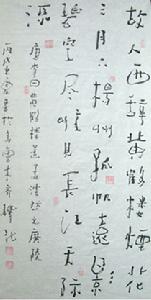 故人西辭黃鶴樓煙花
三月下揚州孤帆遠影
碧空盡唯見長江天際
流
唐李白黃鶴樓送孟浩然之廣陵